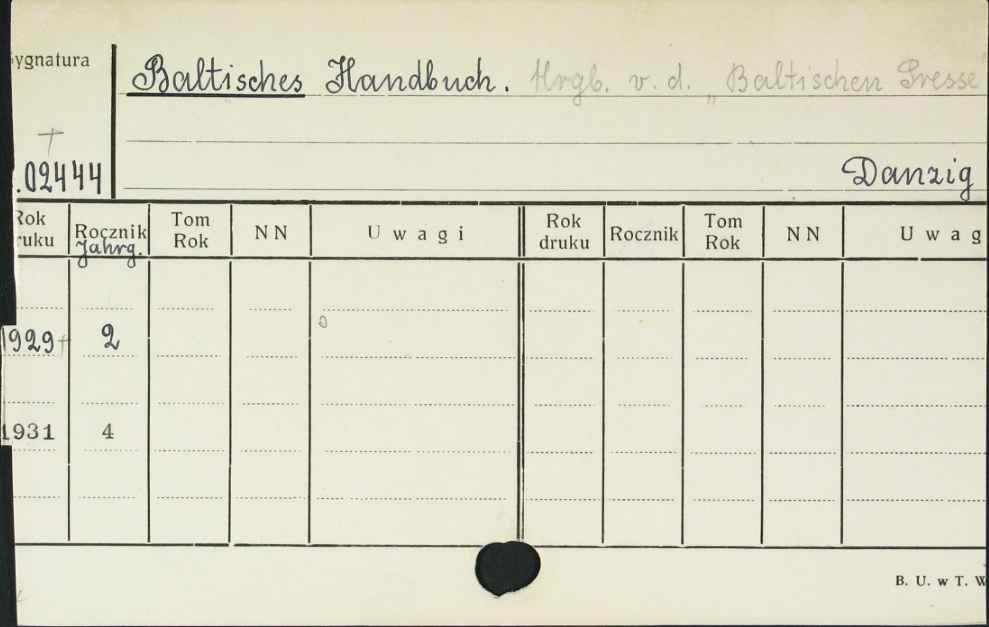 ygnatura
Baltisches Handbuch. Hrgb. v. d. „Baltischen Presse"
.02444
Danzig
Rok druku Rocznik Jahrg. Tom Rok NN Uwagi Rok druku Rocznik Tom Rok NN Uwag
1929 2
1931 4
B. U. w T. W